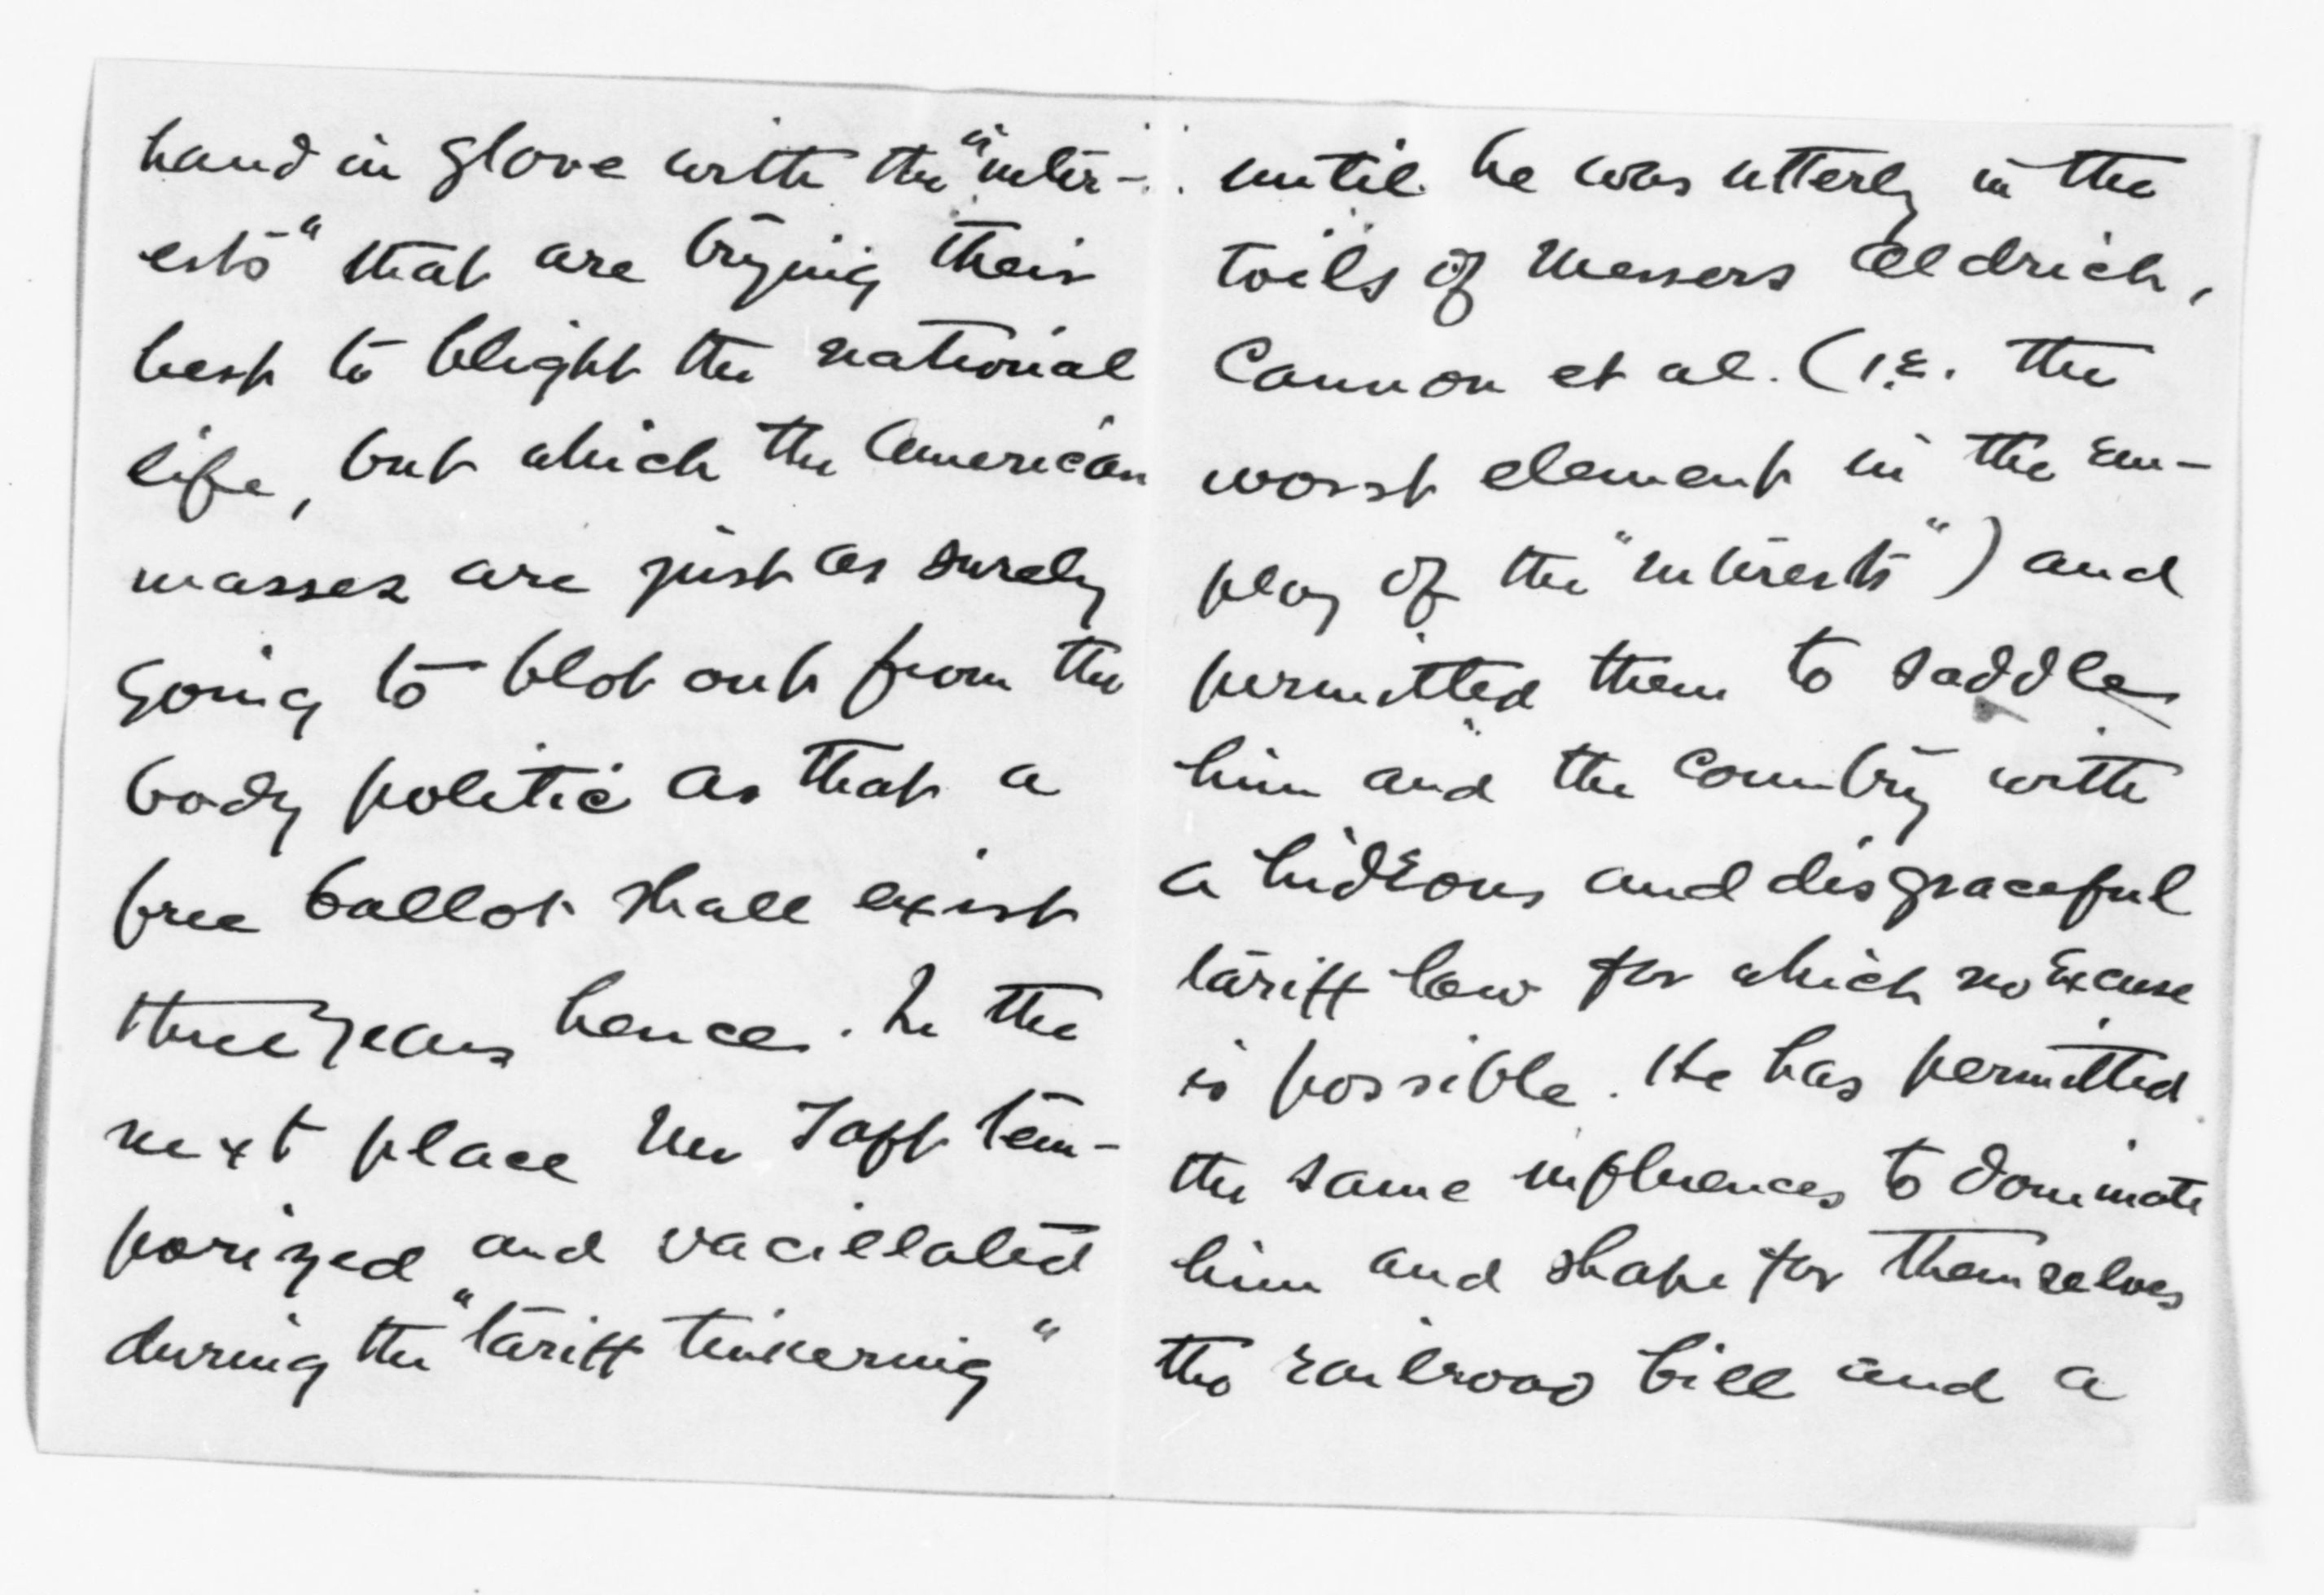 hand in glove with the "inter-
ests" that are trying their
best to blight the national
life, but which the American
masses are just as surely
going to blot out from the
body politic as that a
free ballot shall exist
three years hence. In the
next place Mr Taft tem-
porized and vacillated
during the "tariff tinkering"
until he was utterly in the
toils of Messers Aldrich,
Cannon et al. (i.e. the
worst element in the em-
ploy of the "interests") and
permitted them to saddle
him and the country with
a hideous and disgraceful
tariff law for which no excuse
is possible. He has permitted
the same influences to dominate
him and shape for themselves
the railroad bill and a